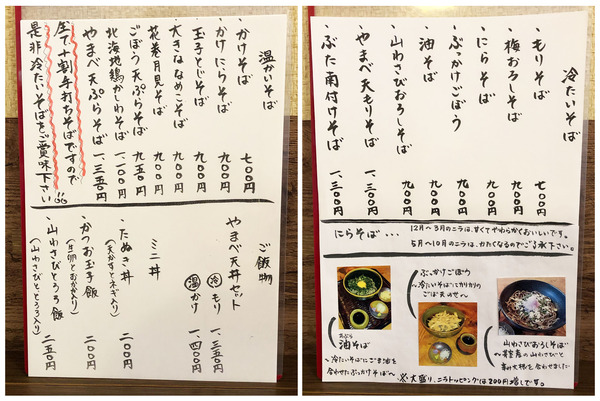 温かいそば
・かけそば 七〇〇円
・かけにらそば 九〇〇円
・玉子とじそば 九〇〇円
・大きななめこそば 九〇〇円
・花巻月見そば 九〇〇円
ごぼう天ぷらそば 九五〇円
北海地鶏かしわそば 一、一〇〇円
やまべ天ぷらそば 一、三五〇円
生で十割手打ちそばですので
是非冷たいそばをご賞味下さい
ご飯物
やまべ天丼セット
冷 もり 一、三五〇円
温 かけ 一、四〇〇円
ミニ丼
・たぬき丼 二〇〇円
(天かすとネギ入り)
・かつお玉子飯 二〇〇円
(生卵とおかか入り)
・山わさびとろろ飯 二五〇円
(山わさび、とろろ入り)
冷たいそば
・もりそば 七〇〇円
・梅おろしそば 九〇〇円
・にらそば 九〇〇円
・ぶっかけごぼう 九〇〇円
・油そば 九〇〇円
・山わさびおろしそば 九〇〇円
・やまべ天もりそば 一、三〇〇円
・ぶた南付けそば 一、三〇〇円
にらそば・・・
12月~3月のニラは、甘くてやわらかくおいしいです。
5月~10月のニラは、かたくなるのでご了承下さい。
ぶっかけごぼう
~冷たいそばにカリカリの
ごぼ天のせ~
あぶら
油そば
~冷たいそばにごま油を
合わせたぶっかけそば~
山わさびおろしそば
山わさびと
大根を合わせました
※大盛り、ニラトッピングは200円増しです。